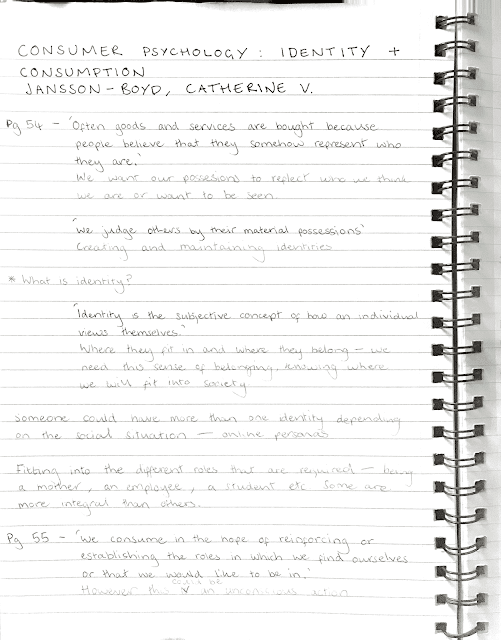 CONSUMER PSYCHOLOGY : IDENTITY +
CONSUMPTION
JANSSON-BOYD, CATHERINE V.
Pg 54 - 'Often goods and services are bought because
people believe that they somehow represent who
they are.'
We want our possesions to reflect who we think
we are or want to be seen.
'We judge others by their material possessions'
Creating and maintaining identities
* What is identity?
'Identity is the subjective concept of how an individual
views themselves.'
Where they fit in and where they belong - we
need this sense of belonging, knowing where
we will fit into society.
Someone could have more than one identity depending
on the social situation - online personas
Fitting into the different roles that are required - being
a mother, an employee, a student etc. Some are
more integral than others.
Pg 55 - 'We consume in the hope of reinforcing or
establishing the roles in which we find ourselves
or that we would like to be in.'
could be
However this v an unconscious action